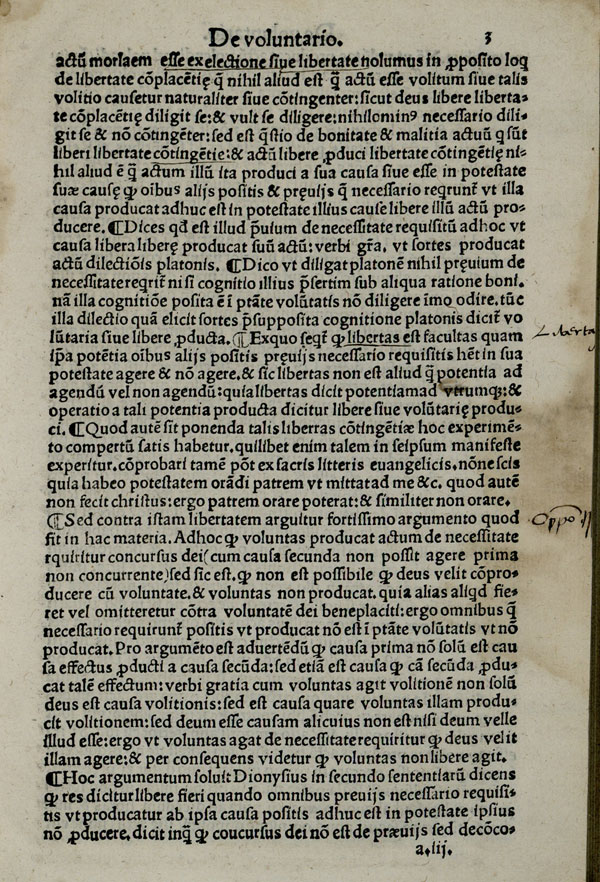 De voluntario. 3
actū morlaem esse ex electione siue libertate nolumus in ꝓposito loq̄
de libertate cōplacētię q̄ nihil aliud est q̄ actū esse volitum siue talis
volitio causetur naturaliter siue cōtingenter: sicut deus libere liberta-
te cōplacētię diligit se: & vult se diligere: nihilominꝰ necessario dili-
git se & nō cōtingēter: sed est q̄stio de bonitate & malitia actuū q̄ sūt
liberi libertate cōtingētie: & actū libere ꝓduci libertate cōtingētię ni-
hil aliud ē q̄ actum illū ita produci a sua causa siue esse in potestate
suæ causę ꝙ oībus alijs positis & pręuijs q̄ necessario reqrunt̄ vt illa
causa producat adhuc est in potestate illius cause libere illū actū pro-
ducere. ¶Dices qd̄ est illud p̄uium de necessitate requisitū adhoc vt
causa libera liberę producat suū actū: verbi gr̄a. vt sortes producat
actū dilectiōis platonis. ¶Dico vt diligat platonē nihil pręuium de
necessitate reqrit̄ nisi cognitio illius p̄sertim sub aliqua ratione boni.
nā illa cognitiōe posita ē ī ptāte volūtatis nō diligere īmo odire. tūc
illa dilectio quā elicit sortes p̄supposita cognitione platonis dicit̄ vo
lūtaria siue libere ꝓducta. ¶Exquo seqt̄ ꝙ libertas est facultas quam
ip̄a potētia oībus alijs positis pręuijs necessario requisitis hēt in sua
potestate agere & nō agere, & sic libertas non est aliud q̄ potentia ad
agendū vel non agendū: quia libertas dicit potentiam ad vtrumqꝫ: &
operatio a tali potentia producta dicitur libere siue volūtarię produ-
ci. ¶Quod autē sit ponenda talis liberras cōtingētiæ hoc experimē-
to compertū satis habetur. quilibet enim talem in seipsum manifeste
experitur. cōprobari tamē pōt ex sacris litteris euangelicis. nōne scis
quia habeo potestatem orādi patrem vt mittat ad me &c. quod autē
non fecit christus: ergo patrem orare poterat: & similiter non orare.
¶Sed contra istam libertatem arguitur fortissimo argumento quod
fit in hac materia. Adhoc ꝙ voluntas producat actum de necessitate
rquiritur concursus dei (cum causa secunda non possit agere prima
non concurrente) sed sic est. ꝙ non est possibile ꝙ deus velit cōpro-
ducere cū voluntate. & voluntas non producat. quia alias aliqd fie-
ret vel omitteretur cōtra voluntatē dei beneplaciti: ergo omnibus q̄
necessario requirunt̄ positis vt producat nō est ī ptāte volūtatis vt nō
producat. Pro argumēto est aduertēdū ꝙ causa prima nō solū est cau
sa effectus ꝓducti a causa secūda: sed etiā est causa ꝙ cā secūda ꝓdu-
cat talē effectum: verbi gratia cum voluntas agit volitionē non solū
deus est causa volitionis: sed est causa quare voluntas illam produ-
cit volitionem: sed deum esse causam alicuius non est nisi deum velle
illud esse: ergo vt voluntas agat de necessitate requiritur ꝙ deus velit
illam agere: & per consequens videtur ꝙ voluntas non libere agit.
¶Hoc argumentum soluit Dionysius in secundo sententiarū dicens
ꝙ res dicitur libere fieri quando omnibus preuijs necessario requisi-
tis vt producatur ab ipsa causa positis adhuc est in potestate ipsius
nō ꝓducere. dicit inq̄ ꝙ coucursus dei nō est de præuijs sed decōco-
a. iij.
Liberta
Oppo